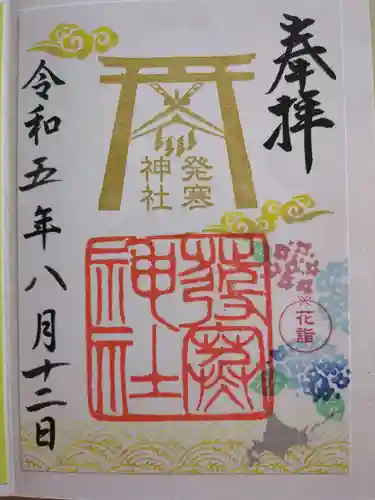 奉拝
発寒
神社
發寒
神社
花詣
令和五年八月十二日